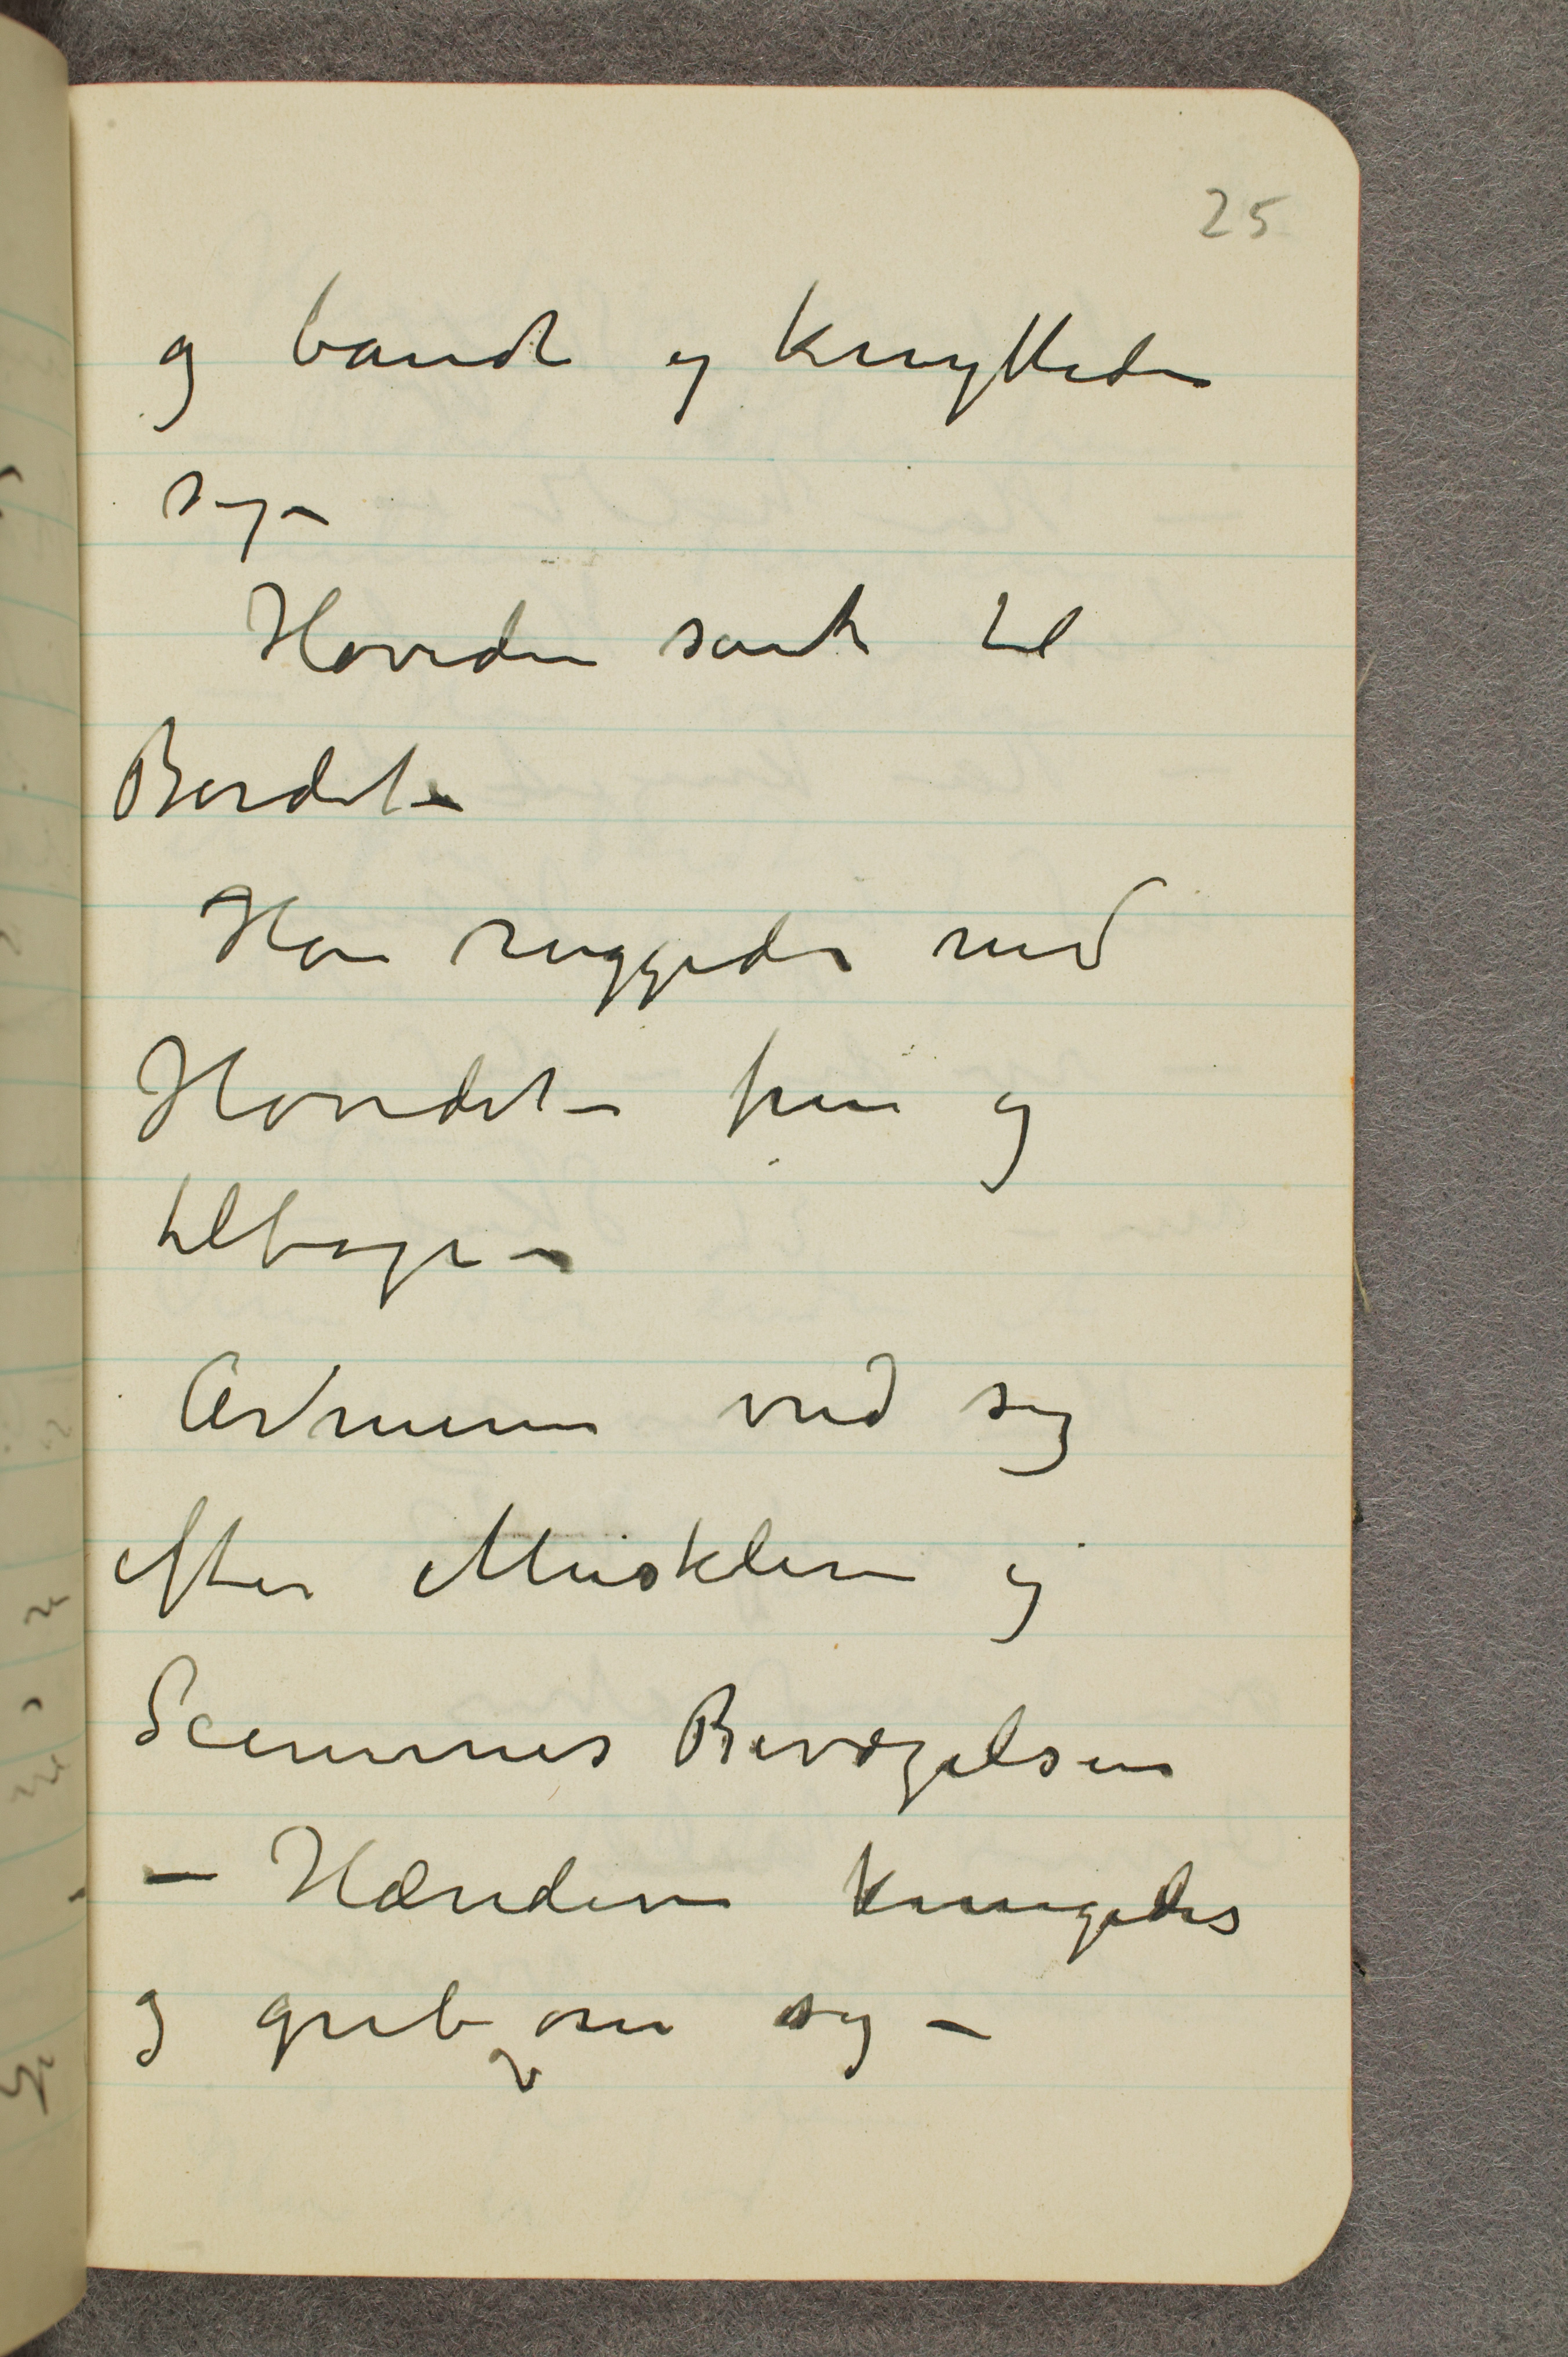 25
og bandt og knyttede
sig –
Hovedet sank til
Bordet –
Han ruggede med
Hovedet – frem og
tilbage –
Armene vred sig
efter Musklers og
Scenernes Bevægelser
– Hænderne knugedes
og greb om sig –